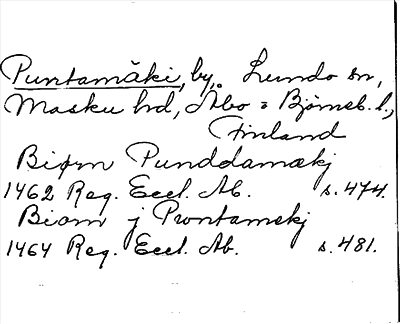 Puntamäki, by, Lundo sn,
Masku hd, Åbo o Björneb. l.,
Finland
Biørn Punddamækj
1462 Reg. Eccl. Ab. s. 474.
Biorn j Pwntamekj
1464 Reg. Eccl. Ab. s. 481.